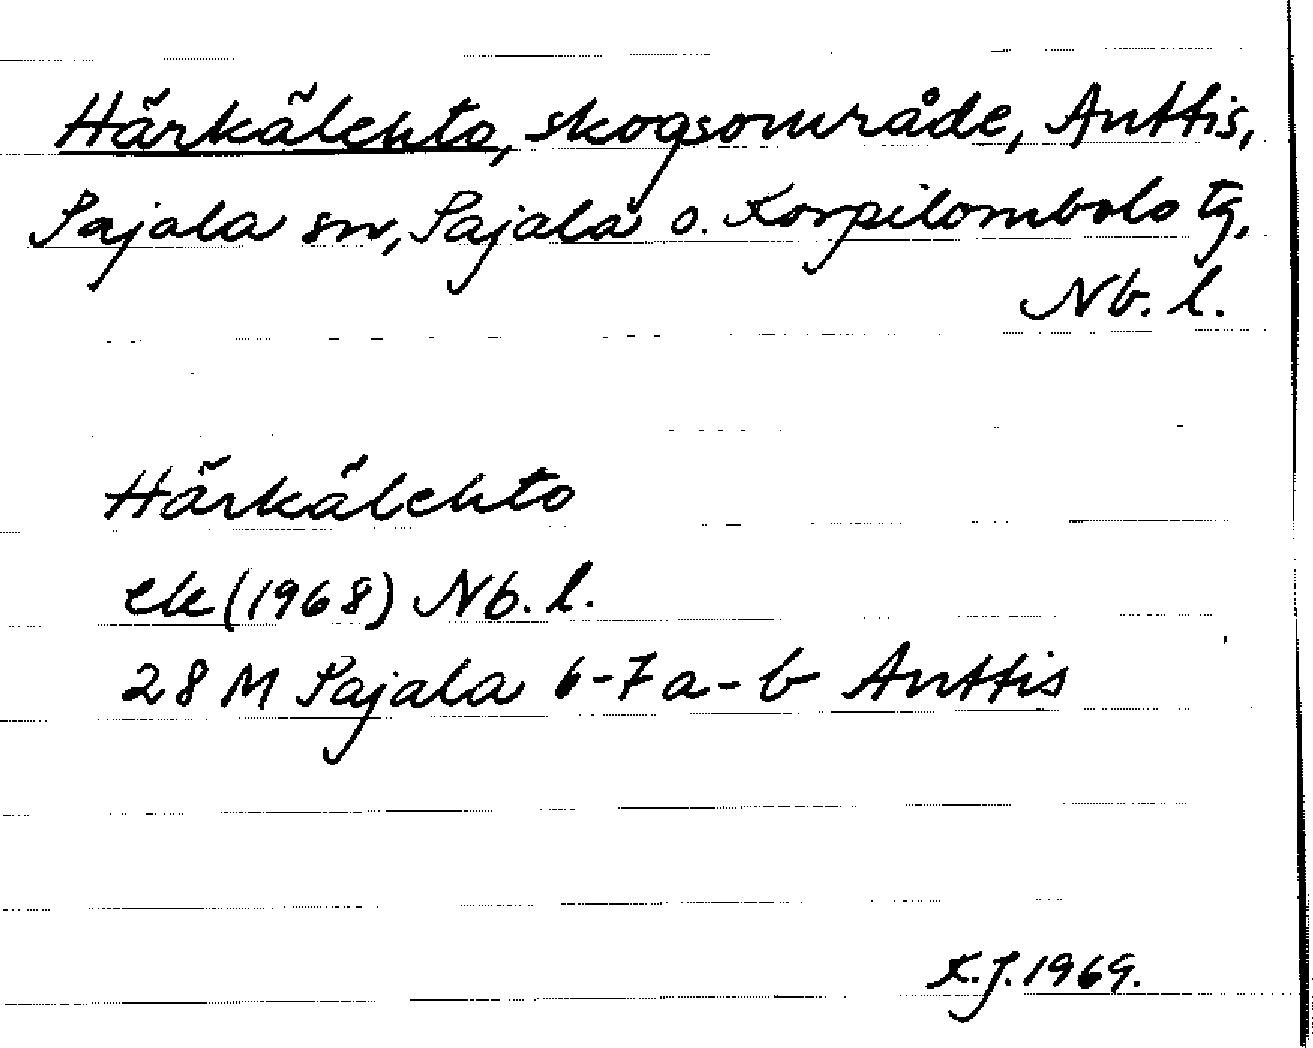 Härkälehto, skogsområde, Anttis,
Pajala sn, Pajala o. Korpilombolo tg,
Nb. l.
Härkälehto
ek (1968) Nb. l.
28 M Pajala 6-7 a-b Anttis
K.J. 1969.